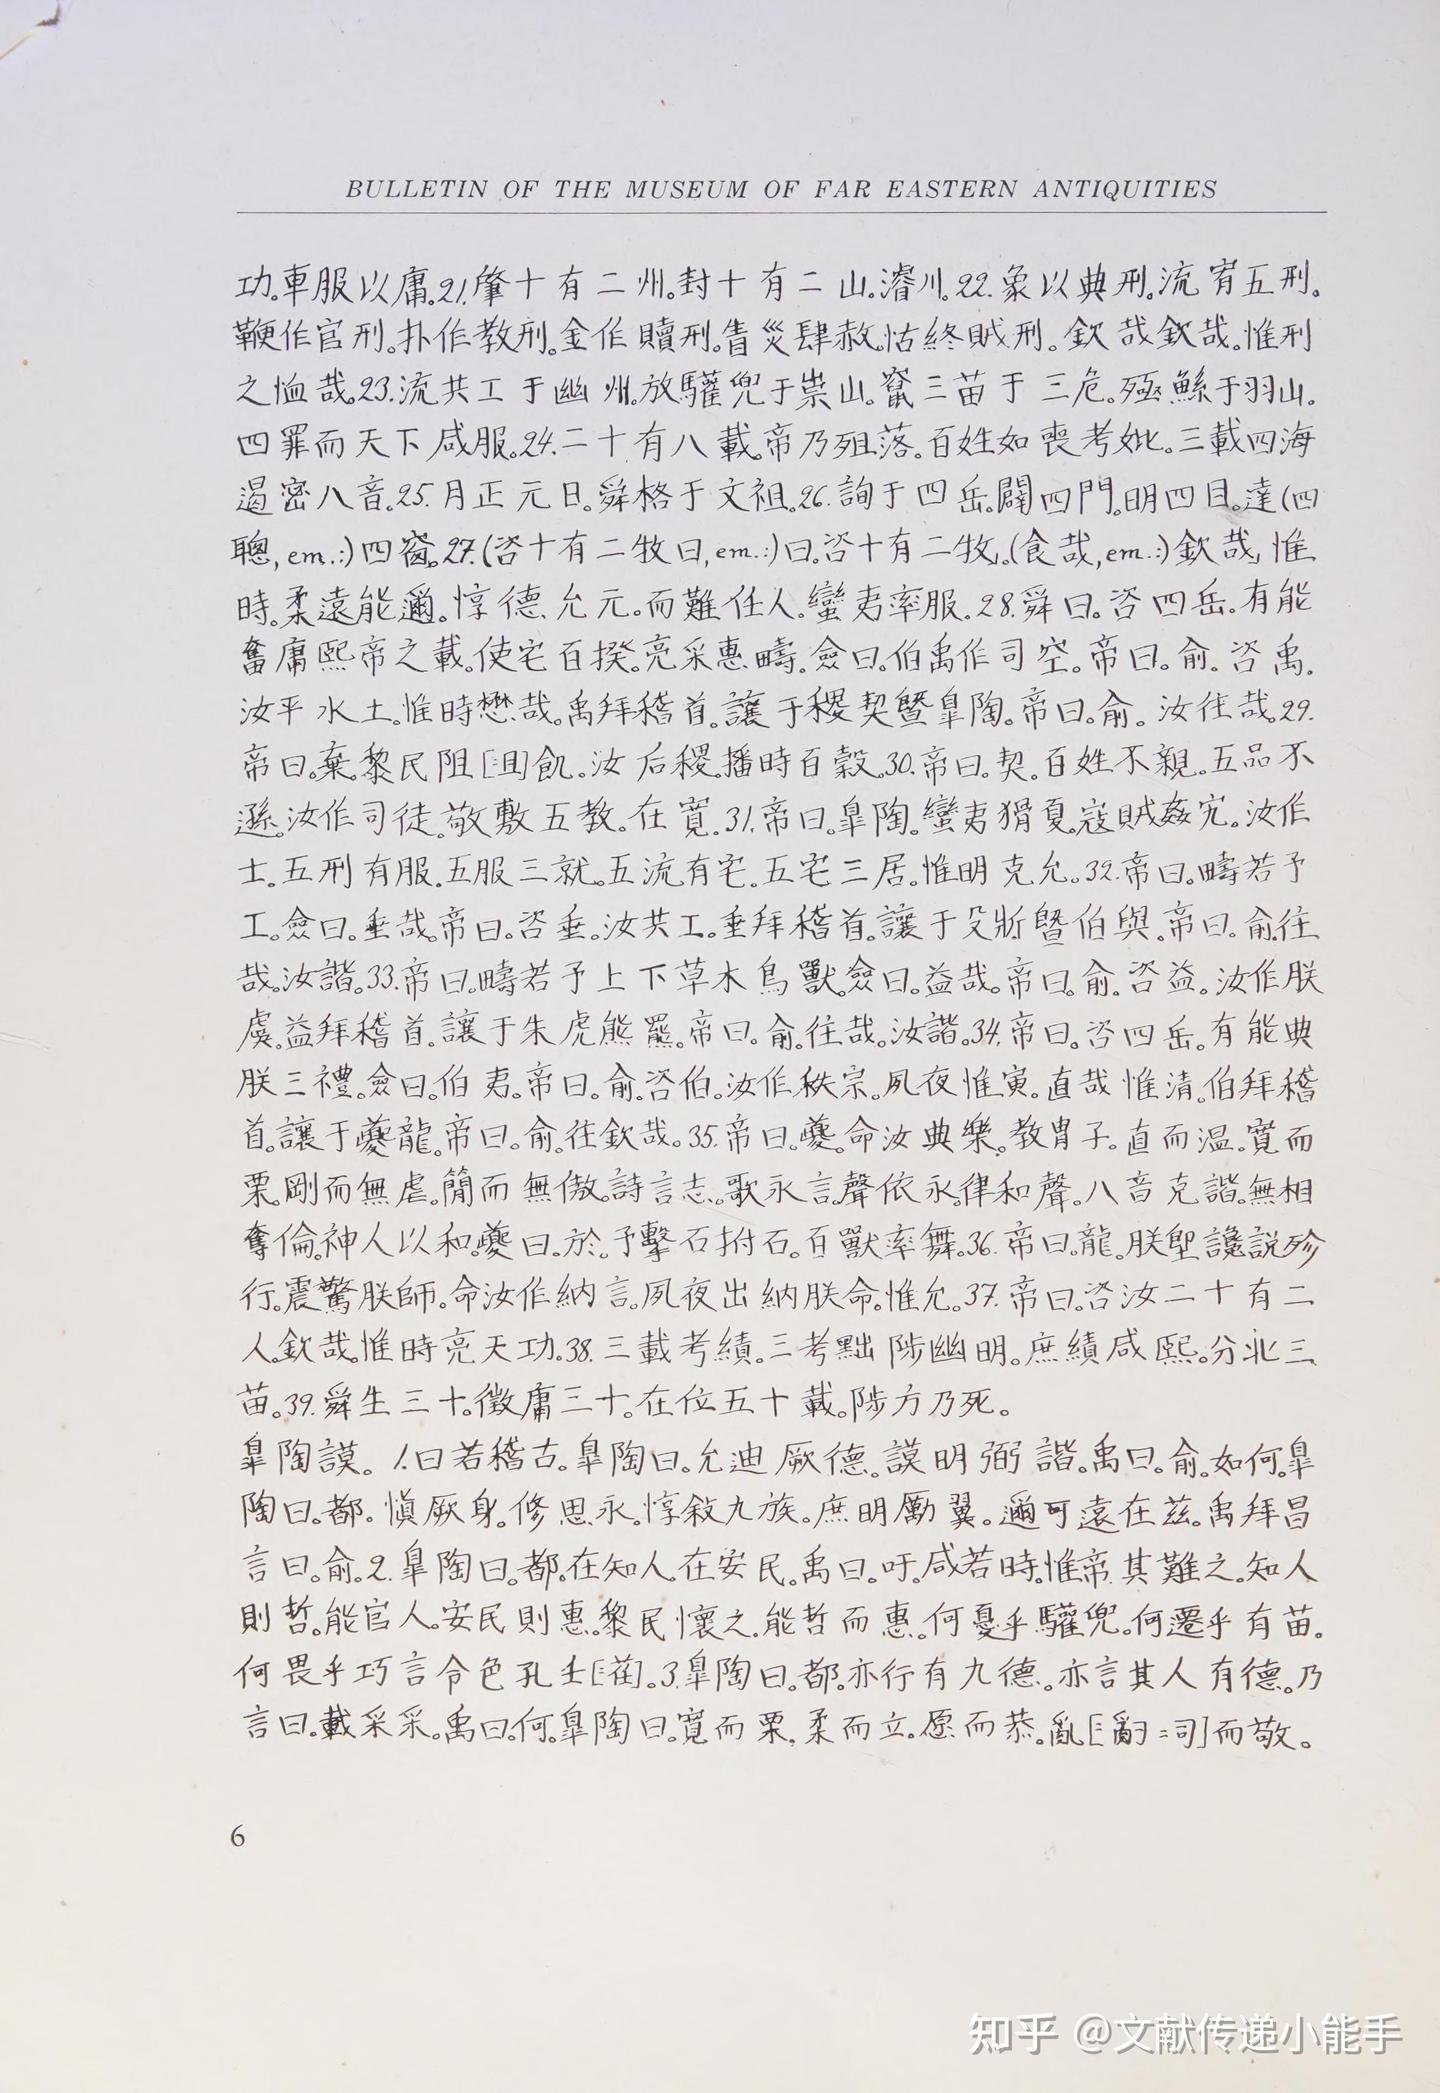 BULLETIN OF THE MUSEUM OF FAR EASTERN ANTIQUITIES
功。車服以庸。21.肇十有二州。封十有二山。濬川。22.象以典刑。流宥五刑。
鞭作官刑。扑作教刑。金作贖刑。眚災肆赦。怙終賊刑。欽哉欽哉。惟刑
之恤哉。23.流共工于幽州。放驩兜于崇山。竄三苗于三危。殛鯀于羽山。
四罪而天下咸服。24.二十有八載。帝乃殂落。百姓如喪考妣。三載四海
遏密八音。25.月正元日。舜格于文祖。26.詢于四岳。闢四門。明四目。達(四
聰, em.:)四窗。27.(咨十有二牧曰, em.:)曰。咨十有二牧」。(食哉, em.:)欽哉」惟
時。柔遠能邇。惇德允元。而難任人。蠻夷率服。28.舜曰。咨四岳。有能
奮庸熙帝之載。使宅百揆。亮采惠疇。僉曰。伯禹作司空。帝曰。俞。咨禹。
汝平水土。惟時懋哉。禹拜稽首。讓于稷契暨皐陶。帝曰。俞。汝往哉。29.
帝曰。棄。黎民阻[=且]飢。汝后稷。播時百穀。30.帝曰。契。百姓不親。五品不
遜。汝作司徒。敬敷五教。在寬。31.帝曰。皐陶。蠻夷猾夏。寇賊姦宄。汝作
士。五刑有服。五服三就。五流有宅。五宅三居。惟明克允。32.帝曰。疇若予
工。僉曰。垂哉。帝曰。咨垂。汝共工。垂拜稽首。讓于殳斨暨伯與。帝曰。俞。往
哉。汝諧。33.帝曰。疇若予上下草木鳥獸。僉曰。益哉。帝曰。俞。咨益。汝作朕
虞。益拜稽首。讓于朱虎熊羆。帝曰。俞。往哉。汝諧。34.帝曰。咨四岳。有能典
朕三禮。僉曰。伯夷。帝曰。俞。咨伯。汝作秩宗。夙夜惟寅。直哉惟清。伯拜稽
首。讓于夔龍。帝曰。俞。往欽哉。35.帝曰。夔。命汝典樂。教冑子。直而温。寬而
栗。剛而無虐。簡而無傲。詩言志。歌永言。聲依永。律和聲。八音克諧。無相
奪倫。神人以和。夔曰。於。予擊石拊石。百獸率舞。36.帝曰。龍。朕堲讒説殄
行。震驚朕師。命汝作納言。夙夜出納朕命。惟允。37.帝曰。咨汝二十有二
人。欽哉。惟時亮天功。38.三載考績。三考黜陟幽明。庶績咸熙。分北三
苗。39.舜生三十。徵庸三十。在位五十載。陟方乃死。
皐陶謨。1.曰若稽古。皐陶曰。允迪厥德。謨明弼諧。禹曰。俞。如何。皐
陶曰。都。慎厥身。修思永。惇敍九族。庶明勵翼。邇可遠在茲。禹拜昌
言曰。俞。2.皐陶曰。都。在知人。在安民。禹曰。吁。咸若時。惟帝其難之。知人
則哲。能官人。安民則惠。黎民懷之。能哲而惠。何憂乎驩兜。何遷乎有苗。
何畏乎巧言令色孔壬[=㐌]。3.皐陶曰。都。亦行有九德。亦言其人有德。乃
言曰。載采采。禹曰。何。皐陶曰。寬而栗,柔而立。愿而恭。亂[=𤔲=司]而敬。
6
知乎 @文献传递小能手